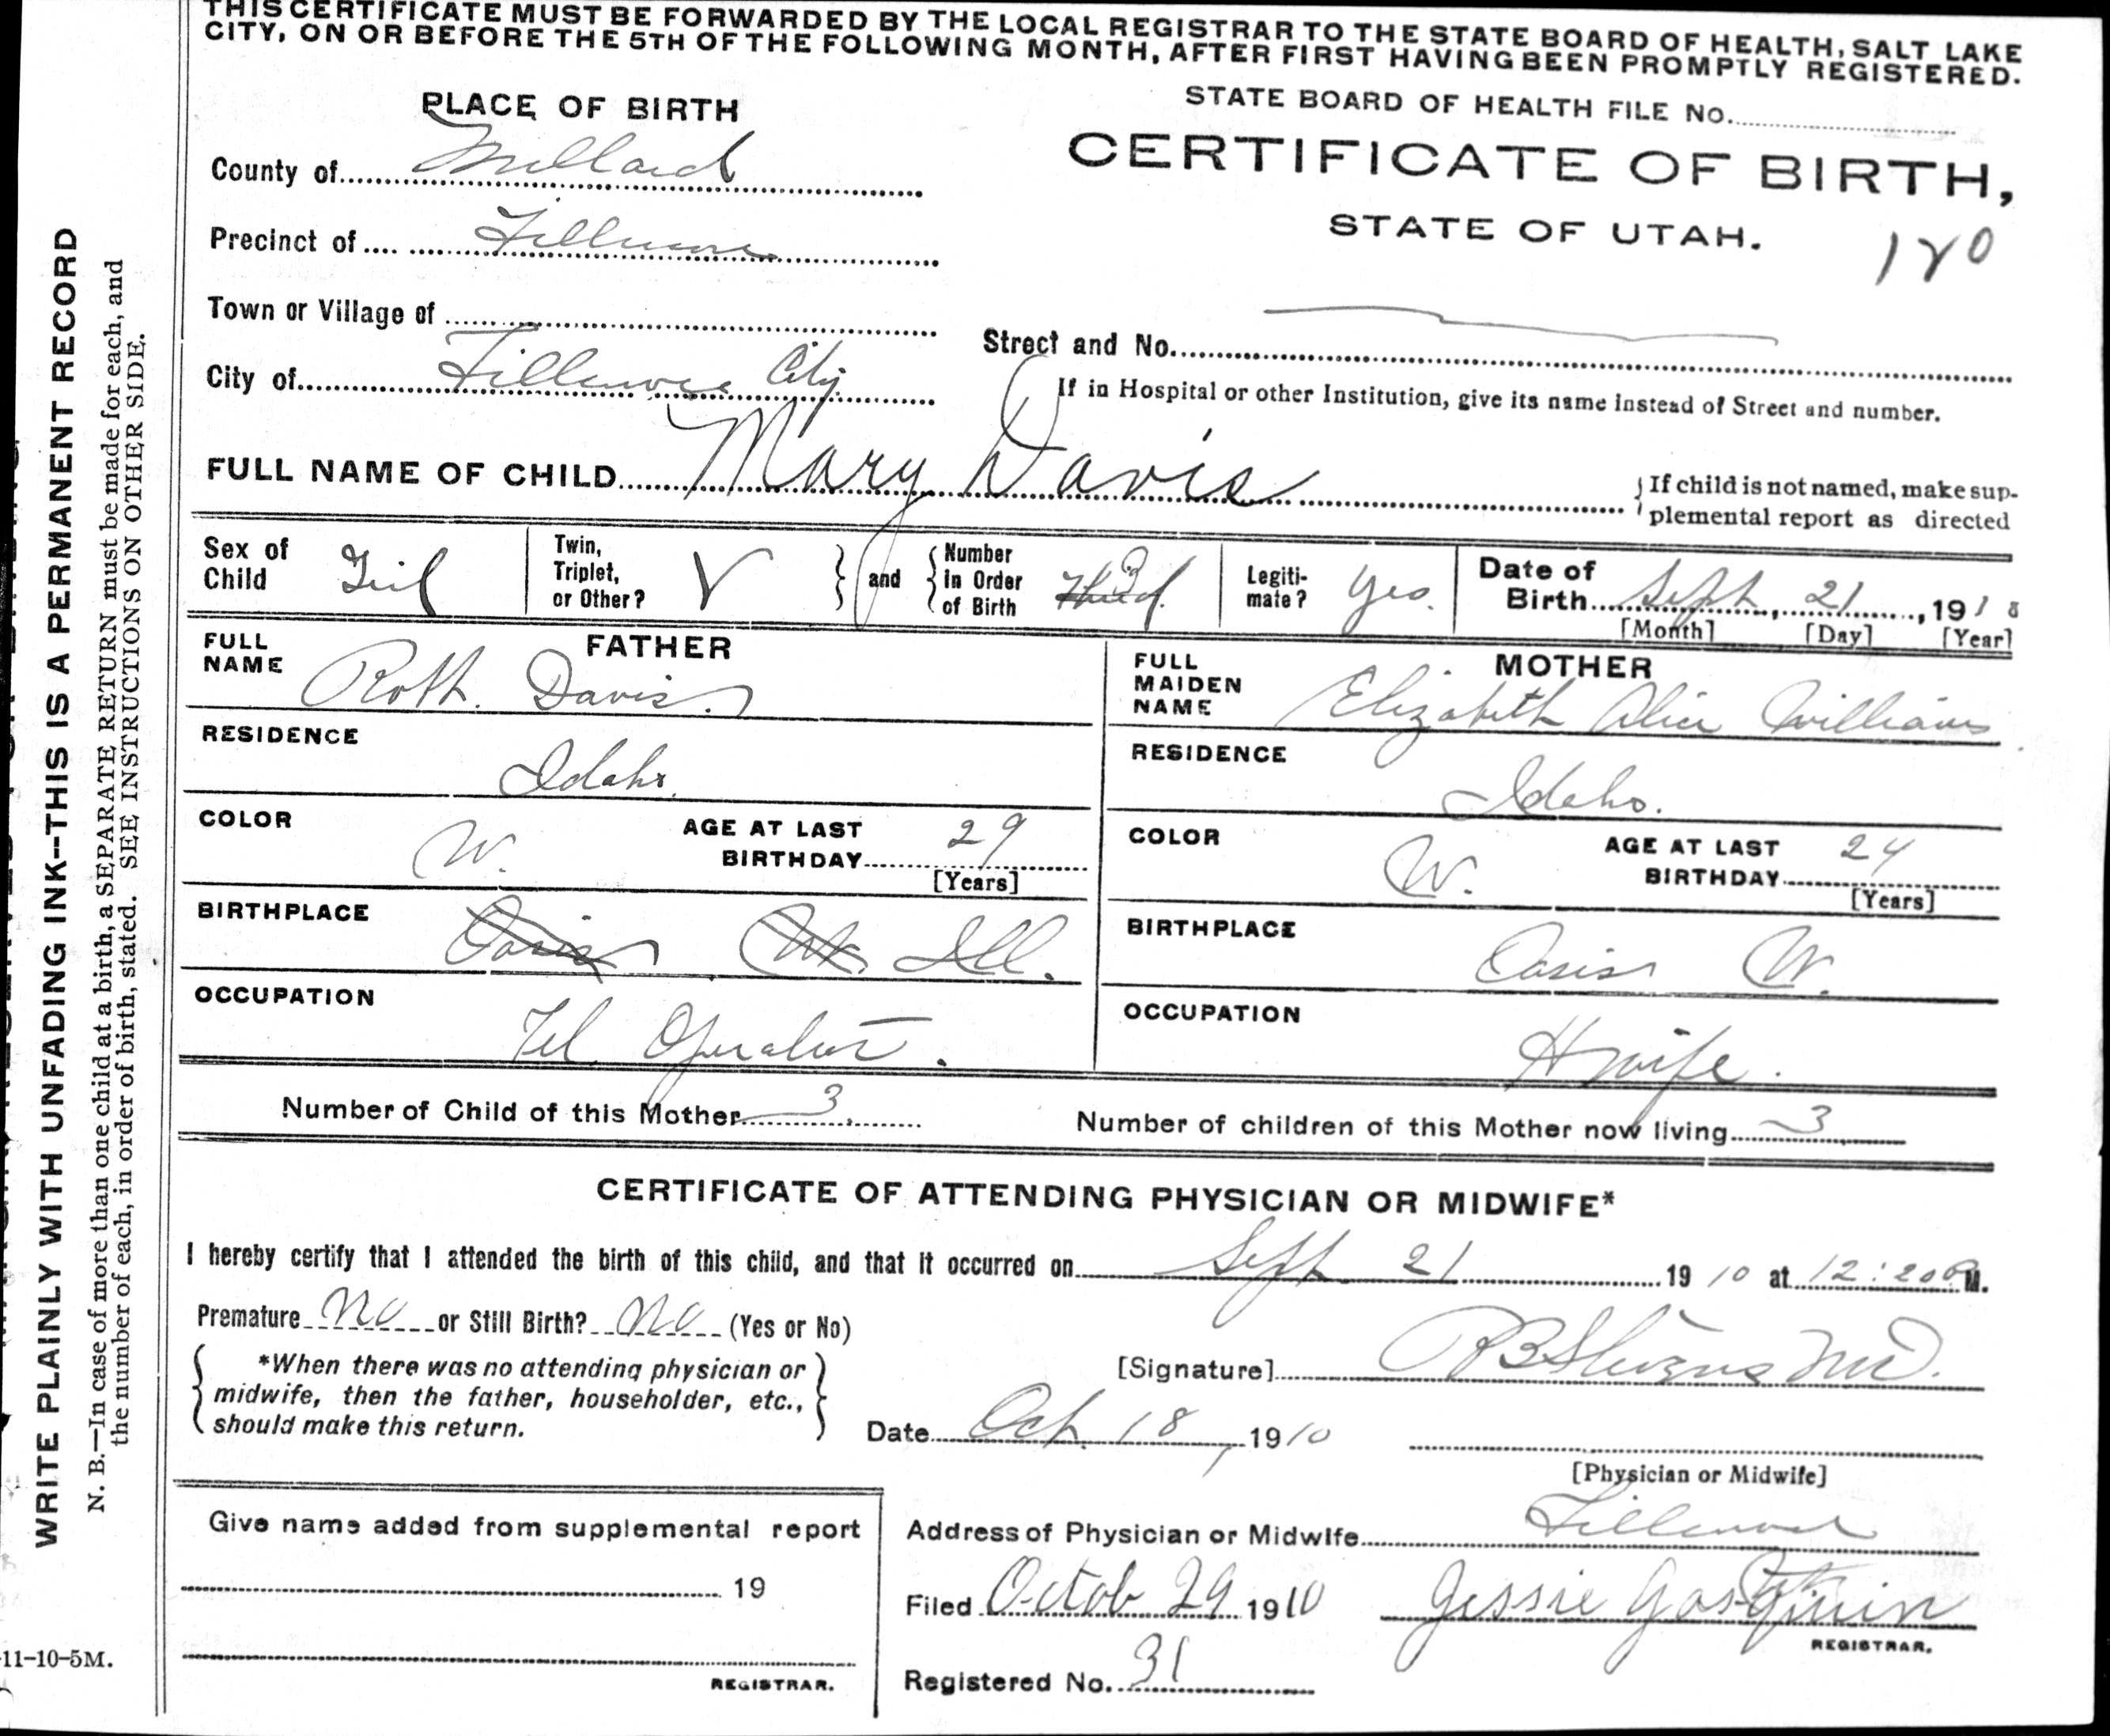 THIS CERTIFICATE MUST BE FORWARDED BY THE LOCAL REGISTRAR TO THE STATE BOARD OF HEALTH, SALT LAKE
CITY, ON OR BEFORE THE 5TH OF THE FOLLOWING MONTH, AFTER FIRST HAVING BEEN PROMPTLY REGISTERED.
PLACE OF BIRTH
STATE BOARD OF HEALTH FILE No.
CERTIFICATE OF BIRTH,
STATE OF UTAH.
180
County of Millard
Precinct of Fillmore
Town or Village of
City of Fillmore City
Street and No.
If in Hospital or other Institution, give its name instead of Street and number.
FULL NAME OF CHILD Mary Davis
If child is not named, make sup-
plemental report as directed
Sex of Child Girl
Twin, Triplet, or Other? V
and
Number in Order of Birth Third 3
Legiti-mate? Yes.
Date of Birth Sept, 21, 1910
[Month] [Day] [Year]
FATHER
FULL NAME Roth. Davis.
RESIDENCE Idaho.
COLOR W. AGE AT LAST BIRTHDAY 29
[Years]
BIRTHPLACE Oasis Ut. Ill.
OCCUPATION Tel Operator.
MOTHER
FULL MAIDEN NAME Elizabeth Alice Williams
RESIDENCE Idaho.
COLOR W. AGE AT LAST BIRTHDAY 24
[Years]
BIRTHPLACE Oasis
OCCUPATION H wife.
Number of Child of this Mother 3.
Number of children of this Mother now living 3
CERTIFICATE OF ATTENDING PHYSICIAN OR MIDWIFE*
I hereby certify that I attended the birth of this child, and that it occurred on Sept 21 1910 at 12:20 P M.
Premature No or Still Birth? No (Yes or No)
*When there was no attending physician or
midwife, then the father, householder, etc.,
should make this return.
[Signature] Stevens MD.
Date Oct. 18, 1910
[Physician or Midwife]
Give name added from supplemental report
19
REGISTRAR.
Address of Physician or Midwife Fillmore
Filed Octob 29 1910 Jessie
REGISTRAR.
Registered No. 31
WRITE PLAINLY WITH UNFADING INK--THIS IS A PERMANENT RECORD
N. B.—In case of more than one child at a birth, a SEPARATE RETURN must be made for each, and
the number of each, in order of birth, stated. SEE INSTRUCTIONS ON OTHER SIDE.
11-10-5M.